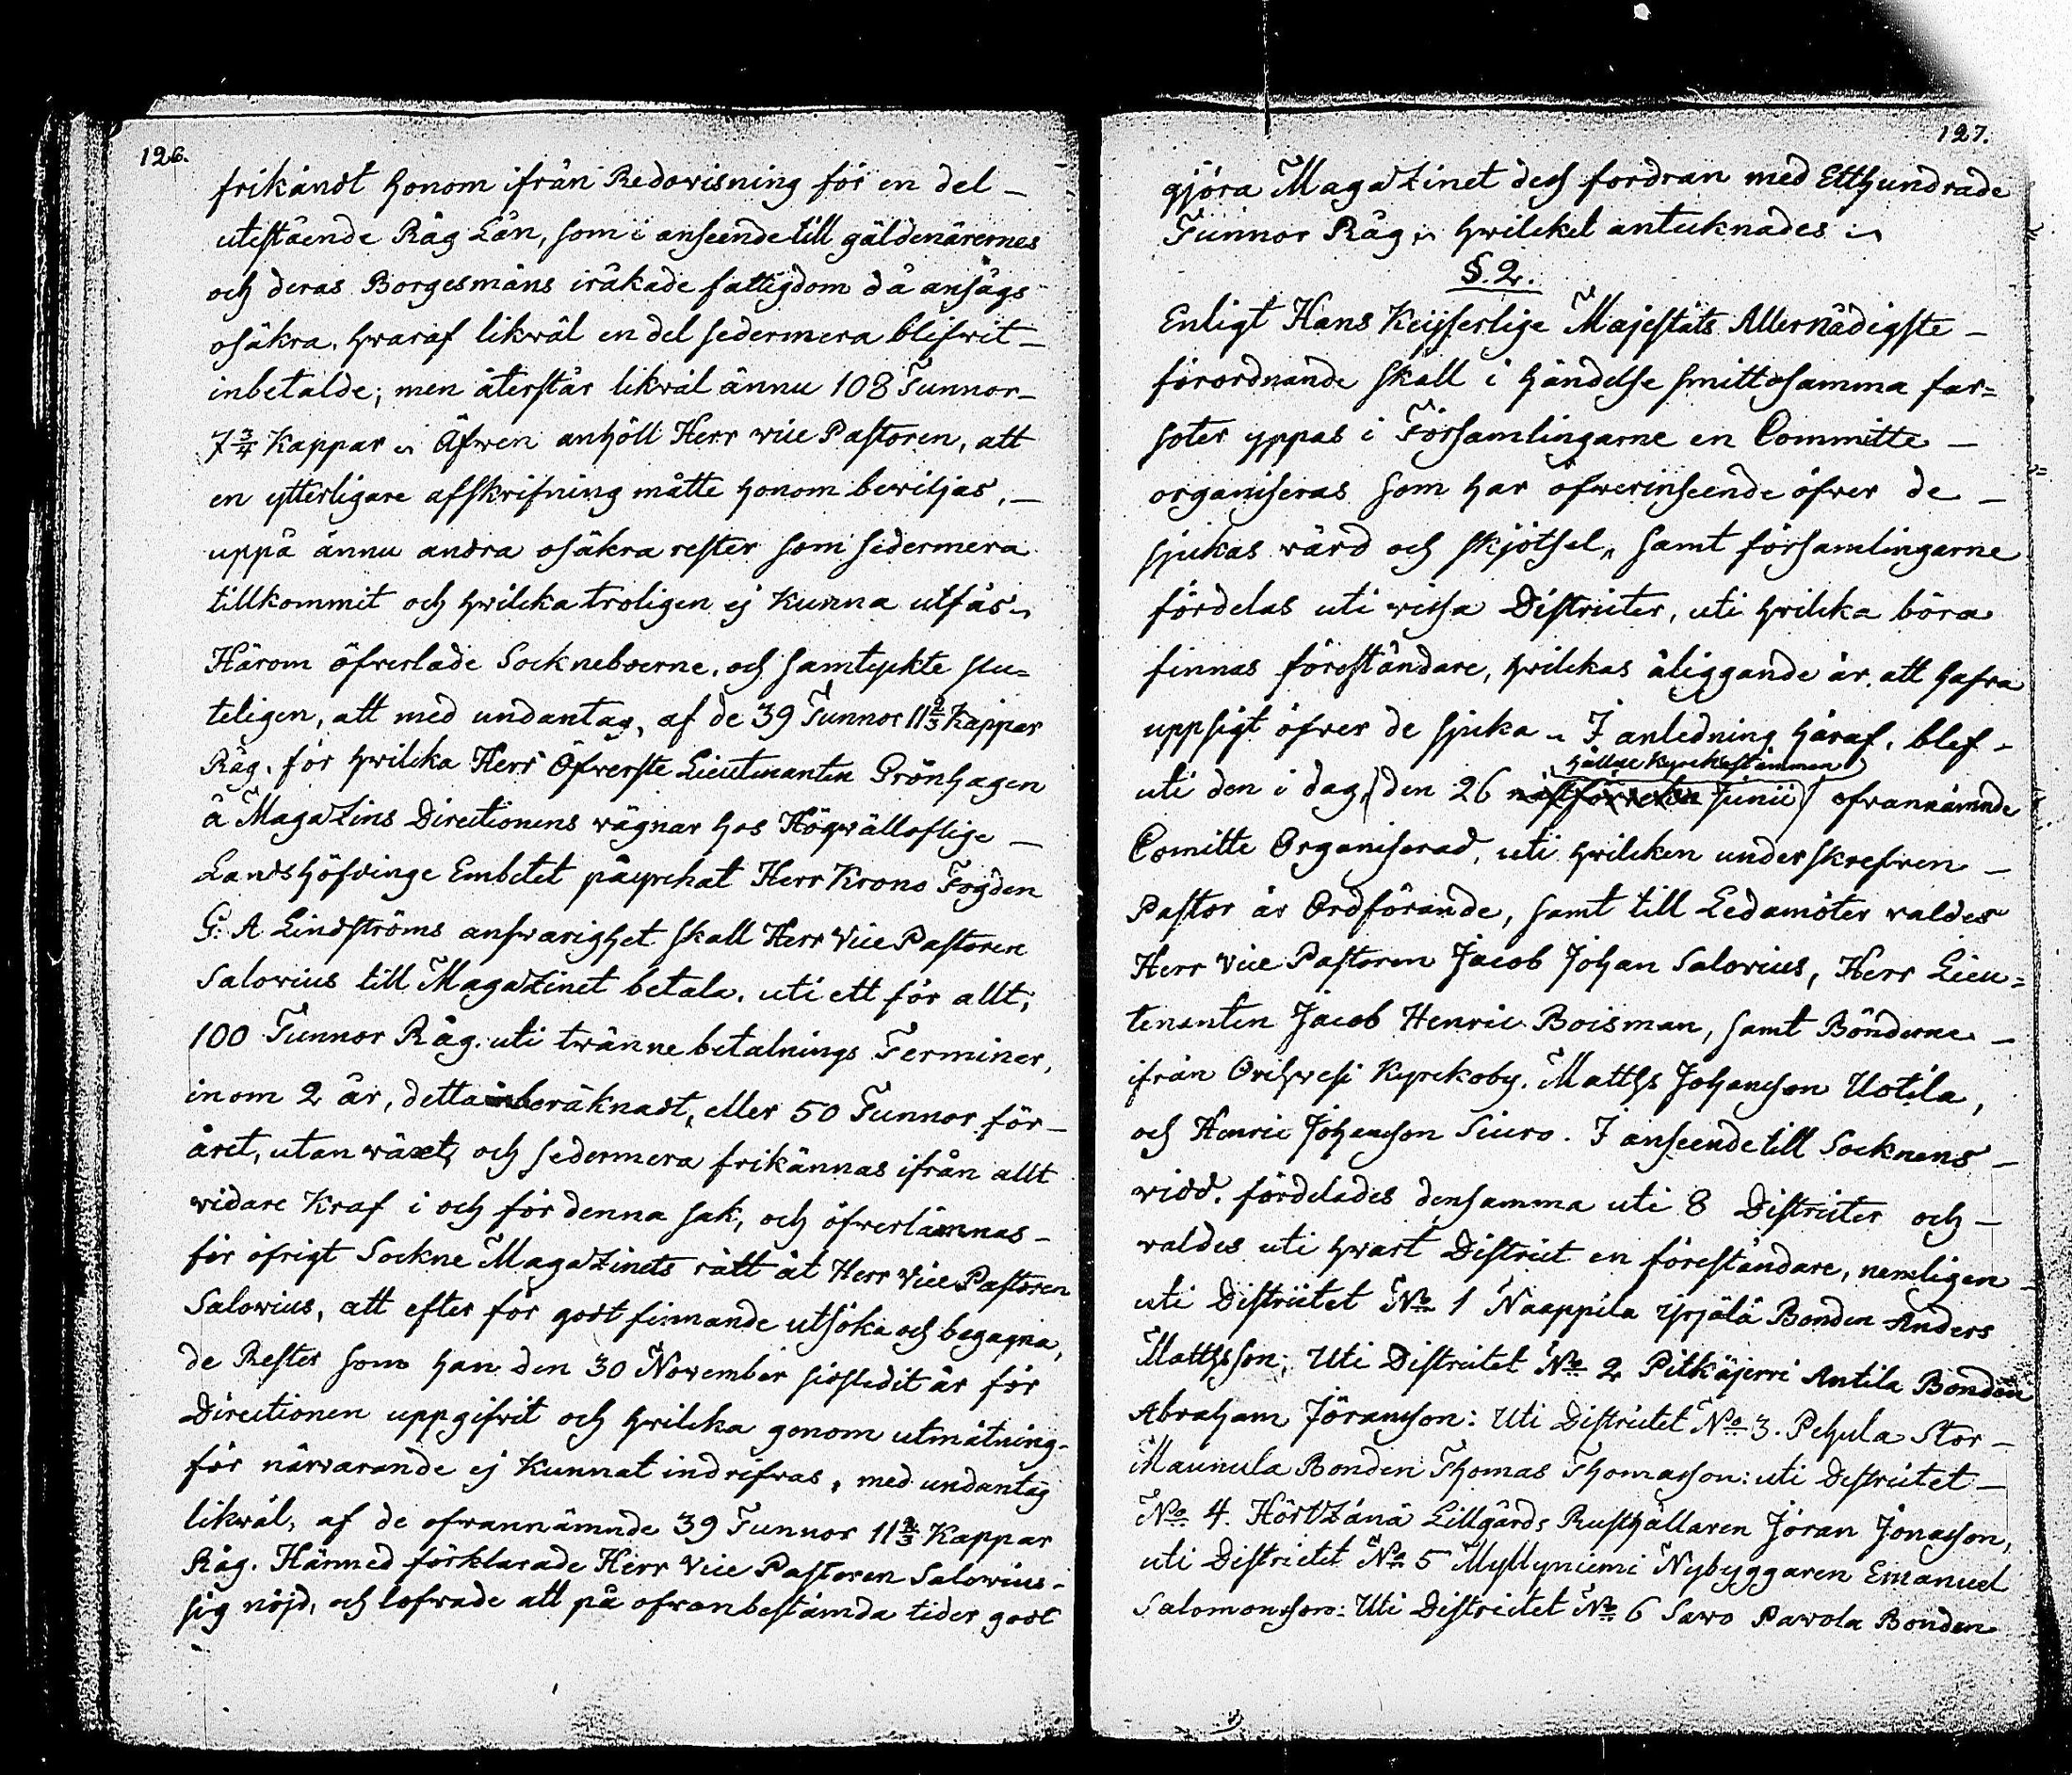 126.
frikändt honom ifrån Redovisning för en del –
utestående Råg Lån, som i anseende till gäldenärernes
och deras Borgesmäns iråkade fattigdom då ansågs
osäkra, hvaraf likväl en del sedermera blifvit –
inbetalde; men återstår likväl ännu 108 Tunnor –
7 3/4 Kappar. Äfwen anhöll Herr vice Pastoren, att
en ytterligare afskrifning måtte honom beviljas, –
uppå ännu andra osäkra rester som sedermera
tillkommit och hvilcka troligen ej Kunna utfås.
Härom öfverlade Sockneboerne, och samtyckte slu=
teligen, att med undantag, af de 39 Tunnor 11 2/3 Kappar
Råg, för hvilcka Herr Öfwerste Lieutenanten Grönhagen
å Magazins Directionens vägnar hos Högvälloflige –
Landshöfdinge Embetet påyrckat Herr Krono Fogden
G. A Lindströms ansvarighet skall Herr Vice Pastoren
Salovius till Magazinet betala, uti ett för allt;
100 Tunnor Råg. uti tvänne betalnings Terminer,
inom 2 år, detta inberäknadt, eller 50 Tunnor för –
året, utan växt, och sedermera frikännas ifrån allt
vidare Kraf i och för denna sak, och öfverlämnas –
för öfrigt Sockne Magazinets rätt åt Herr Vice Pastoren
Salovius, att efter för godt finnande utsöka och begagna,
de Rester som han den 30 November sidstledit år för
Directionen uppgifvit och hvilcka genom utmätning –
för närvarande ej Kunnat indrifvas, med undantag
likväl, af de ofvannämnde 39 Tunnor 11 2/3 Kappar
Råg. Härmed förklarade Herr Vice Pastoren Salovius –
sig nöjd, och lofvade att på ofvanbestämda tider godt
127.
gjöra Magazinet dess fordran med Etthundrade
Tunnor Råg, hvilcket antecknades
§. 2.
Enligt Hans Keijserlige Majestäts Allernådigste –
förordnande skall i händelse smittosamma far=
soter yppas i Församlingarne en Committe –
organiseras som har öfverinseende öfver de –
sjukas vård och skjötsel, samt församlingarne
fördelas uti vissa Districter, uti hvilcka böra
finnas föreståndare, hvilckas åliggande är att hafva
uppsigt öfver de sjuka. I anledning häraf, blef –
hållne Kyrckostämman
uti den i dag, den 26 Junii ofvannämnde
Comitte Organiserad, uti hvilcken underskrefven –
Pastor är Ordförande, samt till Ledamöter valdes
Herr Vice Pastoren Jacob Johan Salovius, Herr Lieu=
tenanten Jacob Henric Boisman, samt Bönderne –
ifrån Orihvesi Kyrckoby, Matths Johansson Uotila,
och Henric Johansson Siuro. I anseende till Socknens –
vidd, fördelades densamma uti 8 Districter och –
valdes uti hvart District en föreståndare, nemligen –
uti Districtet No 1 Naappila Yrjälä Bonden Anders
Mattsson; Uti Districtet No 2 Pitkäjervi Antila Bonden
Abraham Jöransson: Uti Districtet No 3. Pehula Stor –
Maunula Bonden Thomas Thomasson: uti Districtet –
No 4. Hörtzänä Lillgårds Rusthållaren Jöran Jonasson,
uti Districtet No 5 Myllyniemi Nybyggaren Emanuel
Salomonsson: Uti Districtet No 6 Savo Pavola Bonden